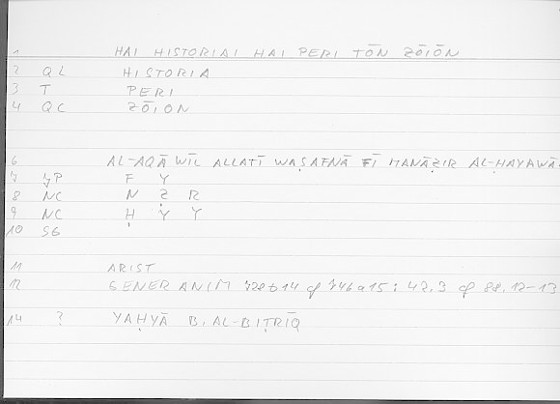 1 HAI HISTORIAI HAI PERI TŌN ZŌIŌN
2 QL HISTORIA
3 T PERI
4 QC ZŌION
6 AL-AQĀWĪL ALLATĪ WAṢAFNĀ FĪ MANĀẒIR AL-ḤAYAWĀ
7 YP F Y
8 NC N Ẓ R
9 NC Ḥ Y Y
10 SG
11 ARIST
12 GENER ANIM 728b14 of 746a15; 42.3 of 88.12-13
14 ? YAḤYĀ B. AL-BIṬRĪQ